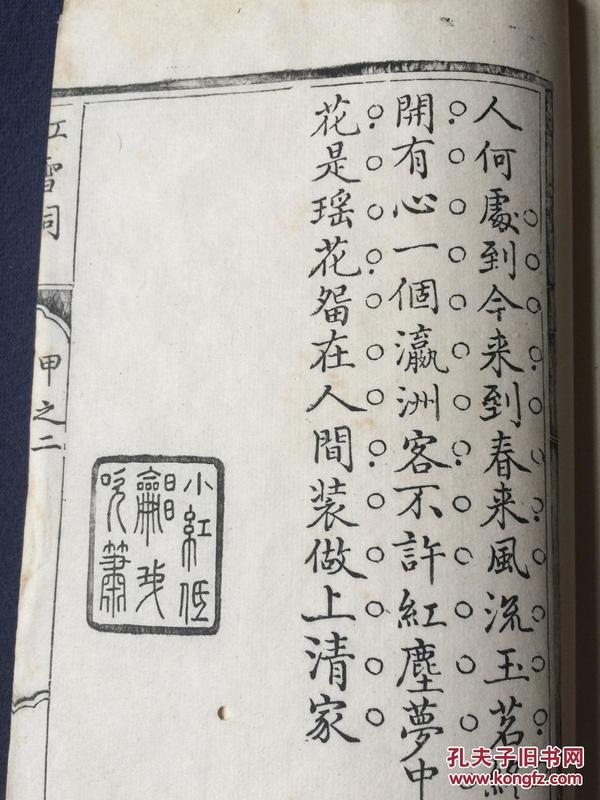 人何處到今来到春来風流玉茗
開有心一個瀛洲客不許紅塵夢中
花是瑶花畱在人間装做上清家
小紅低
唱我
吹簫
雪词
甲之二
孔夫子旧书网
www.kongfz.com